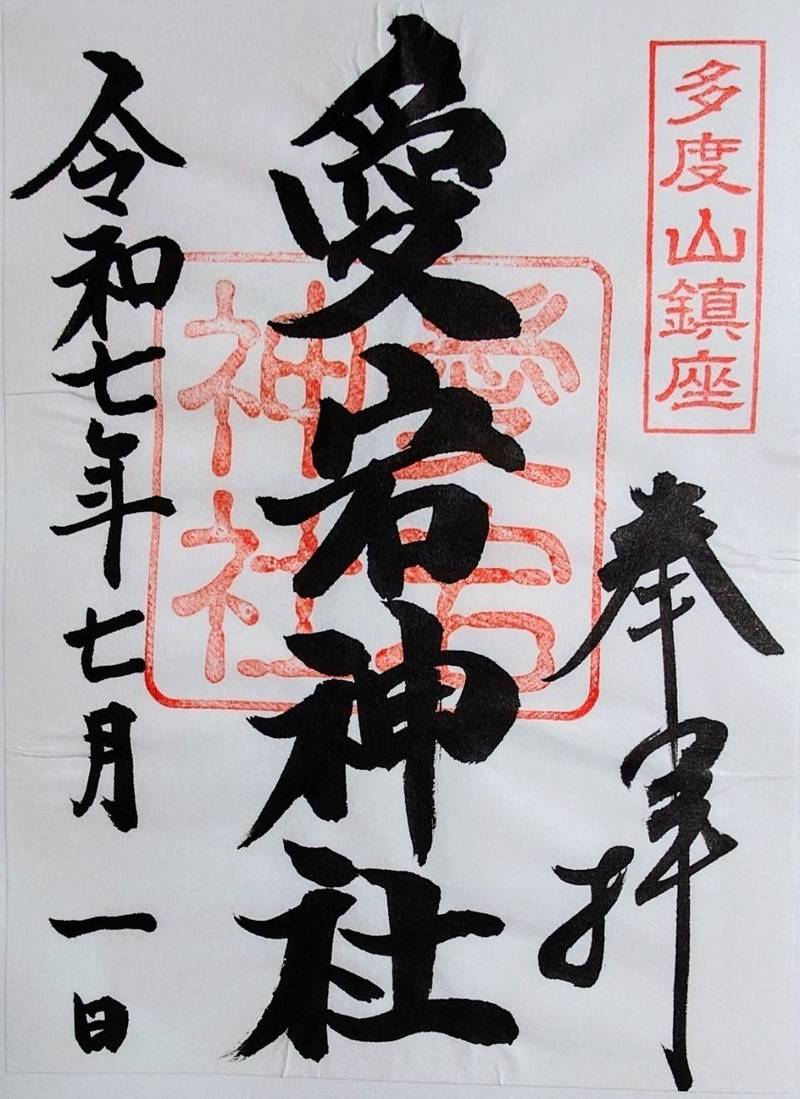 多度山鎮座
奉拝
愛宕神社
愛宕
神社
令和七年七月一日